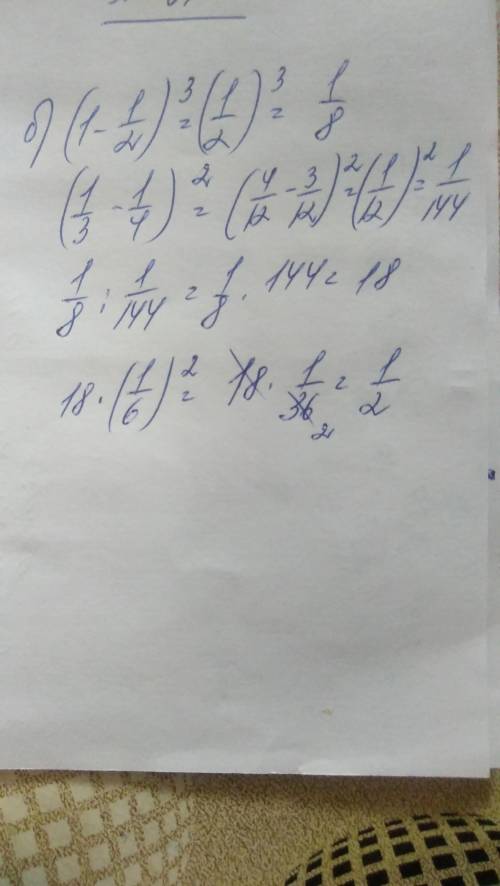 б) (1 - 1/2)³ = (1/2)³ = 1/8
(1/3 - 1/4)² = (4/12 - 3/12)² = (1/12)² = 1/144
1/8 : 1/144 = 1/8 · 144 = 18
18 · (1/6)² = 18 · 1/36 = 1/2
2